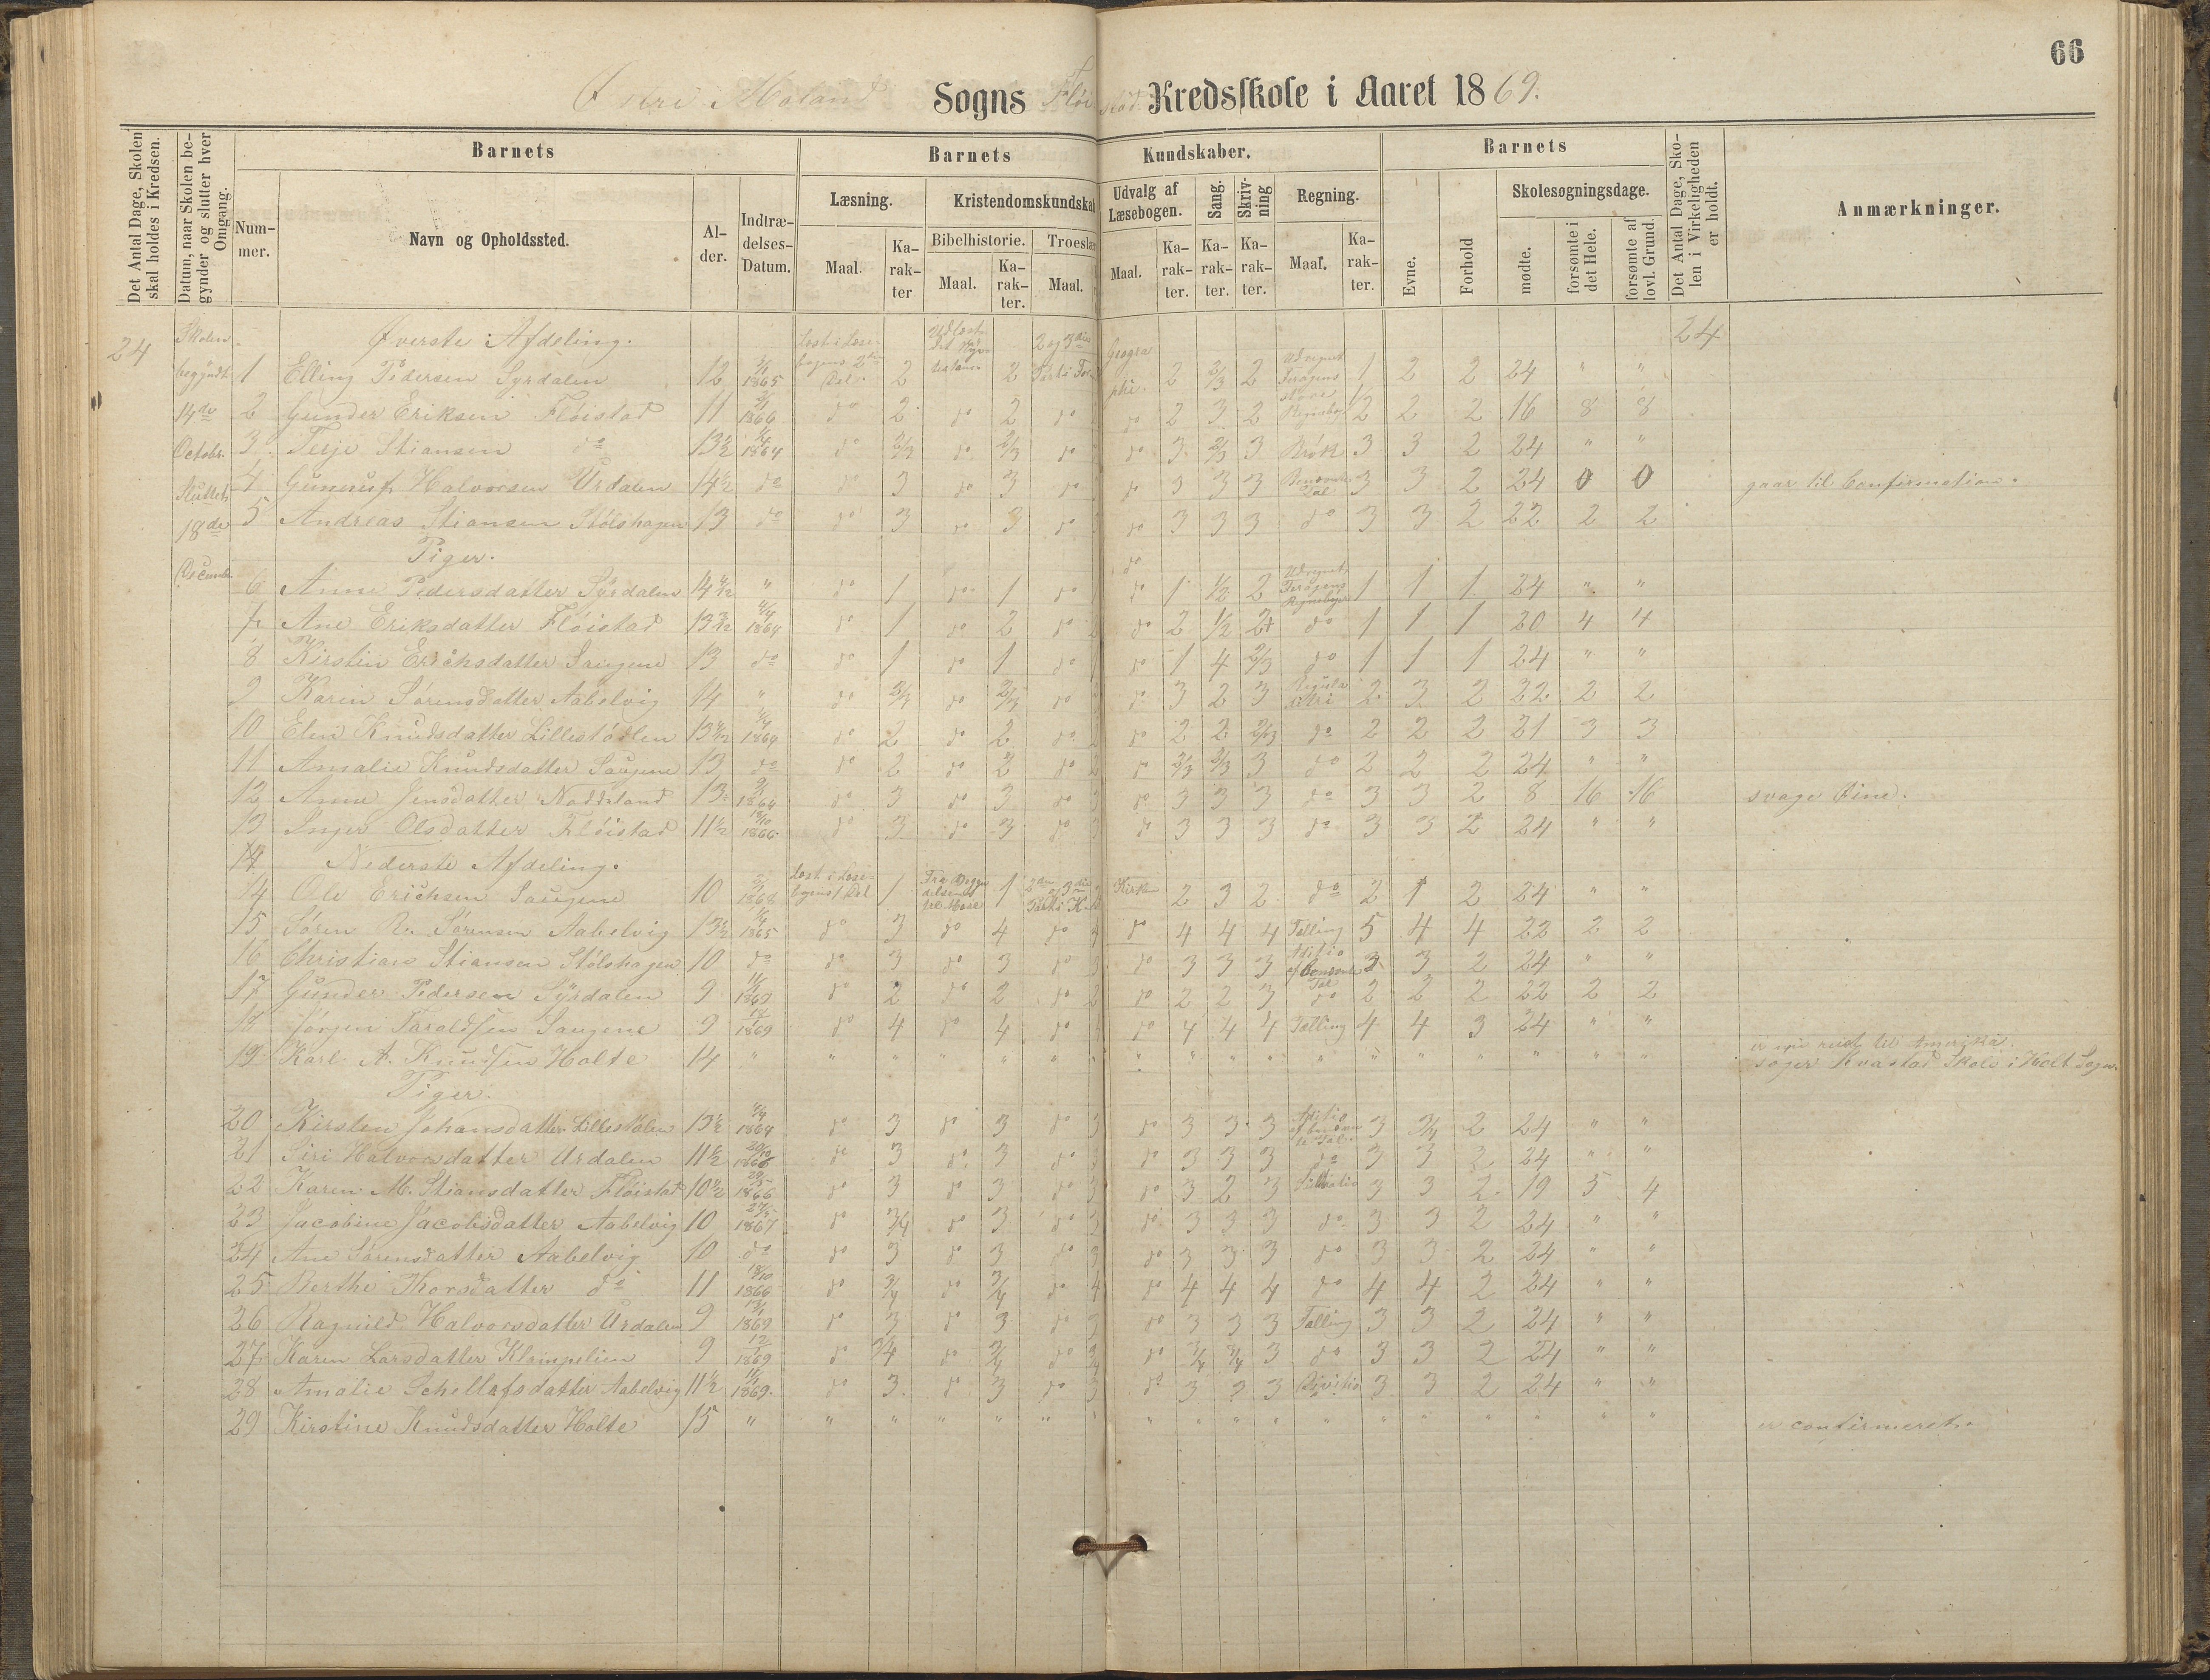 66
Østre Moland Sogns Fløistad Kredsskole i Aaret 1869.
Det Antal Dage, Skolen skal holdes i Kredsen.
Datum, naar Skolen begynder og slutter hver Omgang.
Barnets
Nummer.
Navn og Opholdssted.
Alder.
Indtrædelses-Datum.
Barnets Kundskaber.
Læsning.
Maal.
Karakter
Kristendomskundskab
Bibelhistorie.
Maal.
Karakter.
Troeslære
Maal.
Udvalg af Læsebogen.
Maal.
Karakter.
Sang.
Karakter.
Skrivning
Karakter.
Regning.
Maal.
Karakter.
Barnets
Evne.
Forhold
Skolesøgningsdage.
mødte.
forsømte i det Hele.
forsømte af lovl. Grund.
Det Antal Dage, Skolen i Virkeligheden er holdt.
Anmærkninger.
24
Skolen begyndt 14de Octobr. Sluttet 18de Decembr.
Øverste Afdeling.
24
1 Elling Pedersen Syrdalen 12 1865 2 2 Geographie. 2 2/3 2 1 2 2 24 " "
2 Gunder Eriksen Fløistad 11 1866 do 2 do 2 do do 2 3 2 2 2 2 16 8 8
3 Terje Stiansen do 13½ 1864 do 2/3 do 2/3 do do 3 2/3 3 Brøk 3 3 2 24 " "
4 Halvorsen Urdalen 14½ do do 3 do 3 do do 3 3 3 3 3 2 24 0 0 gaar til Confirmation.
5 Andreas Stiansen Stølshagen 13 do do 3 do 3 do do 3 3 3 do 3 3 2 22 2 2
Piger.
6 Anne Pedersdatter Syrdalen 14½ " do 1 do 1 do do 1 1/2 2 1 1 1 24 " "
7 Ane Eriksdatter Fløistad 1864 do 1 do 2 do do 2 1/2 2 do 1 1 1 20 4 4
8 Kirstin Erichsdatter Saugene 13 do do 1 do 1 do do 1 4 2/3 do 1 1 1 24 " "
9 Karen Sørensdatter Aabelvig 14 " do 2/3 do 2/3 do do 3 2 3 2 3 2 22 2 2
10 Elen Knudsdatter Lillestølen 13½ 1864 do 2 do 2 do do 2 2 2/3 do 2 2 2 21 3 3
11 Amalie Knudsdatter Saugene 13 do do 2 do 2 do 2 do 2/3 2/3 3 do 2 2 2 24 " "
12 Anne Jensdatter Naddeland 13 1864 do 3 do 3 do do 3 3 3 do 3 3 2 8 16 16 svage Øine.
13 Inger Olsdatter Fløistad 11½ 1866 do 3 do 3 do do 3 3 3 do 3 3 2 24 " "
14 Nederste Afdeling.
14 Ole Erichsen Saugene 10 1868 1 1 2 3 2 do 2 1 2 24 " "
15 Søren Sørensen Aabelvig 13½ 1865 do 3 do 4 do 4 do 4 4 4 Tælling 5 4 4 22 2 2
16 Christian Stiansen Stølshagen 10 do do 3 do 3 do 3 do 3 3 3 3 3 2 24 " "
17 Gunder Pedersen Syrdalen 9 1869 do 2 do 2 do 2 do 2 2 3 do 2 2 2 22 2 2
18 Jørgen Taraldsen Saugene 9 1869 do 4 do 4 do 4 do 4 4 4 Tælling 4 4 3 24 " "
er reist til Amerika.
19 Karl A. Knudsen Holte 14 " " " " " " " " " " " " " " " søger Kvastad Skole i Holt Sogn.
Piger.
20 Kirsten Johansdatter Lillestølen 13½ 1864 do 3 do 3 do 3 do 3 3 3 3 3/4 2 24 " "
21 Siri Halvorsdatter Urdalen 11½ 1866 do 3 do 3 do 3 do 3 3 3 do 3 3 2 24 " "
22 Karen M. Stiansdatter Fløistad 10½ 1866 do 3 do 3 do 3 do 3 2 3 3 3 2 19 5 4
23 Jacobine Jacobsdatter Aabelvig 10 1867 do 3/4 do 3 do 3 do 3 3 3 do 3 3 2 24 " "
24 Ane Sørensdatter Aabelvig 10 do do 3 do 3 do 3 do 3 3 3 do 3 3 2 24 " "
25 Berthe Thorsdatter do 11 18/10 1866 do 3/4 do 3/4 do 4 do 4 4 4 do 4 4 2 24 " "
26 Ragnild Halvorsdatter Urdalen 9 1869 do 3 do 3 do 3 do 3 3 3 Tælling 3 3 2 24 " "
27 Karen Larsdatter Klimpelien 9 1869 do 3/4 do 3/4 do 3/4 do 3/4 3/4 3 do 3 3 2 24 " "
28 Amalie Schellefsdatter Aabelvig 11½ 1869. do 3 do 3 do 3 do 3 3 3 Divitio 3 3 2 24 " "
29 Kirstine Knudsdatter Holte 15 " " " " " " " " " " " " " " " er confirmeret.